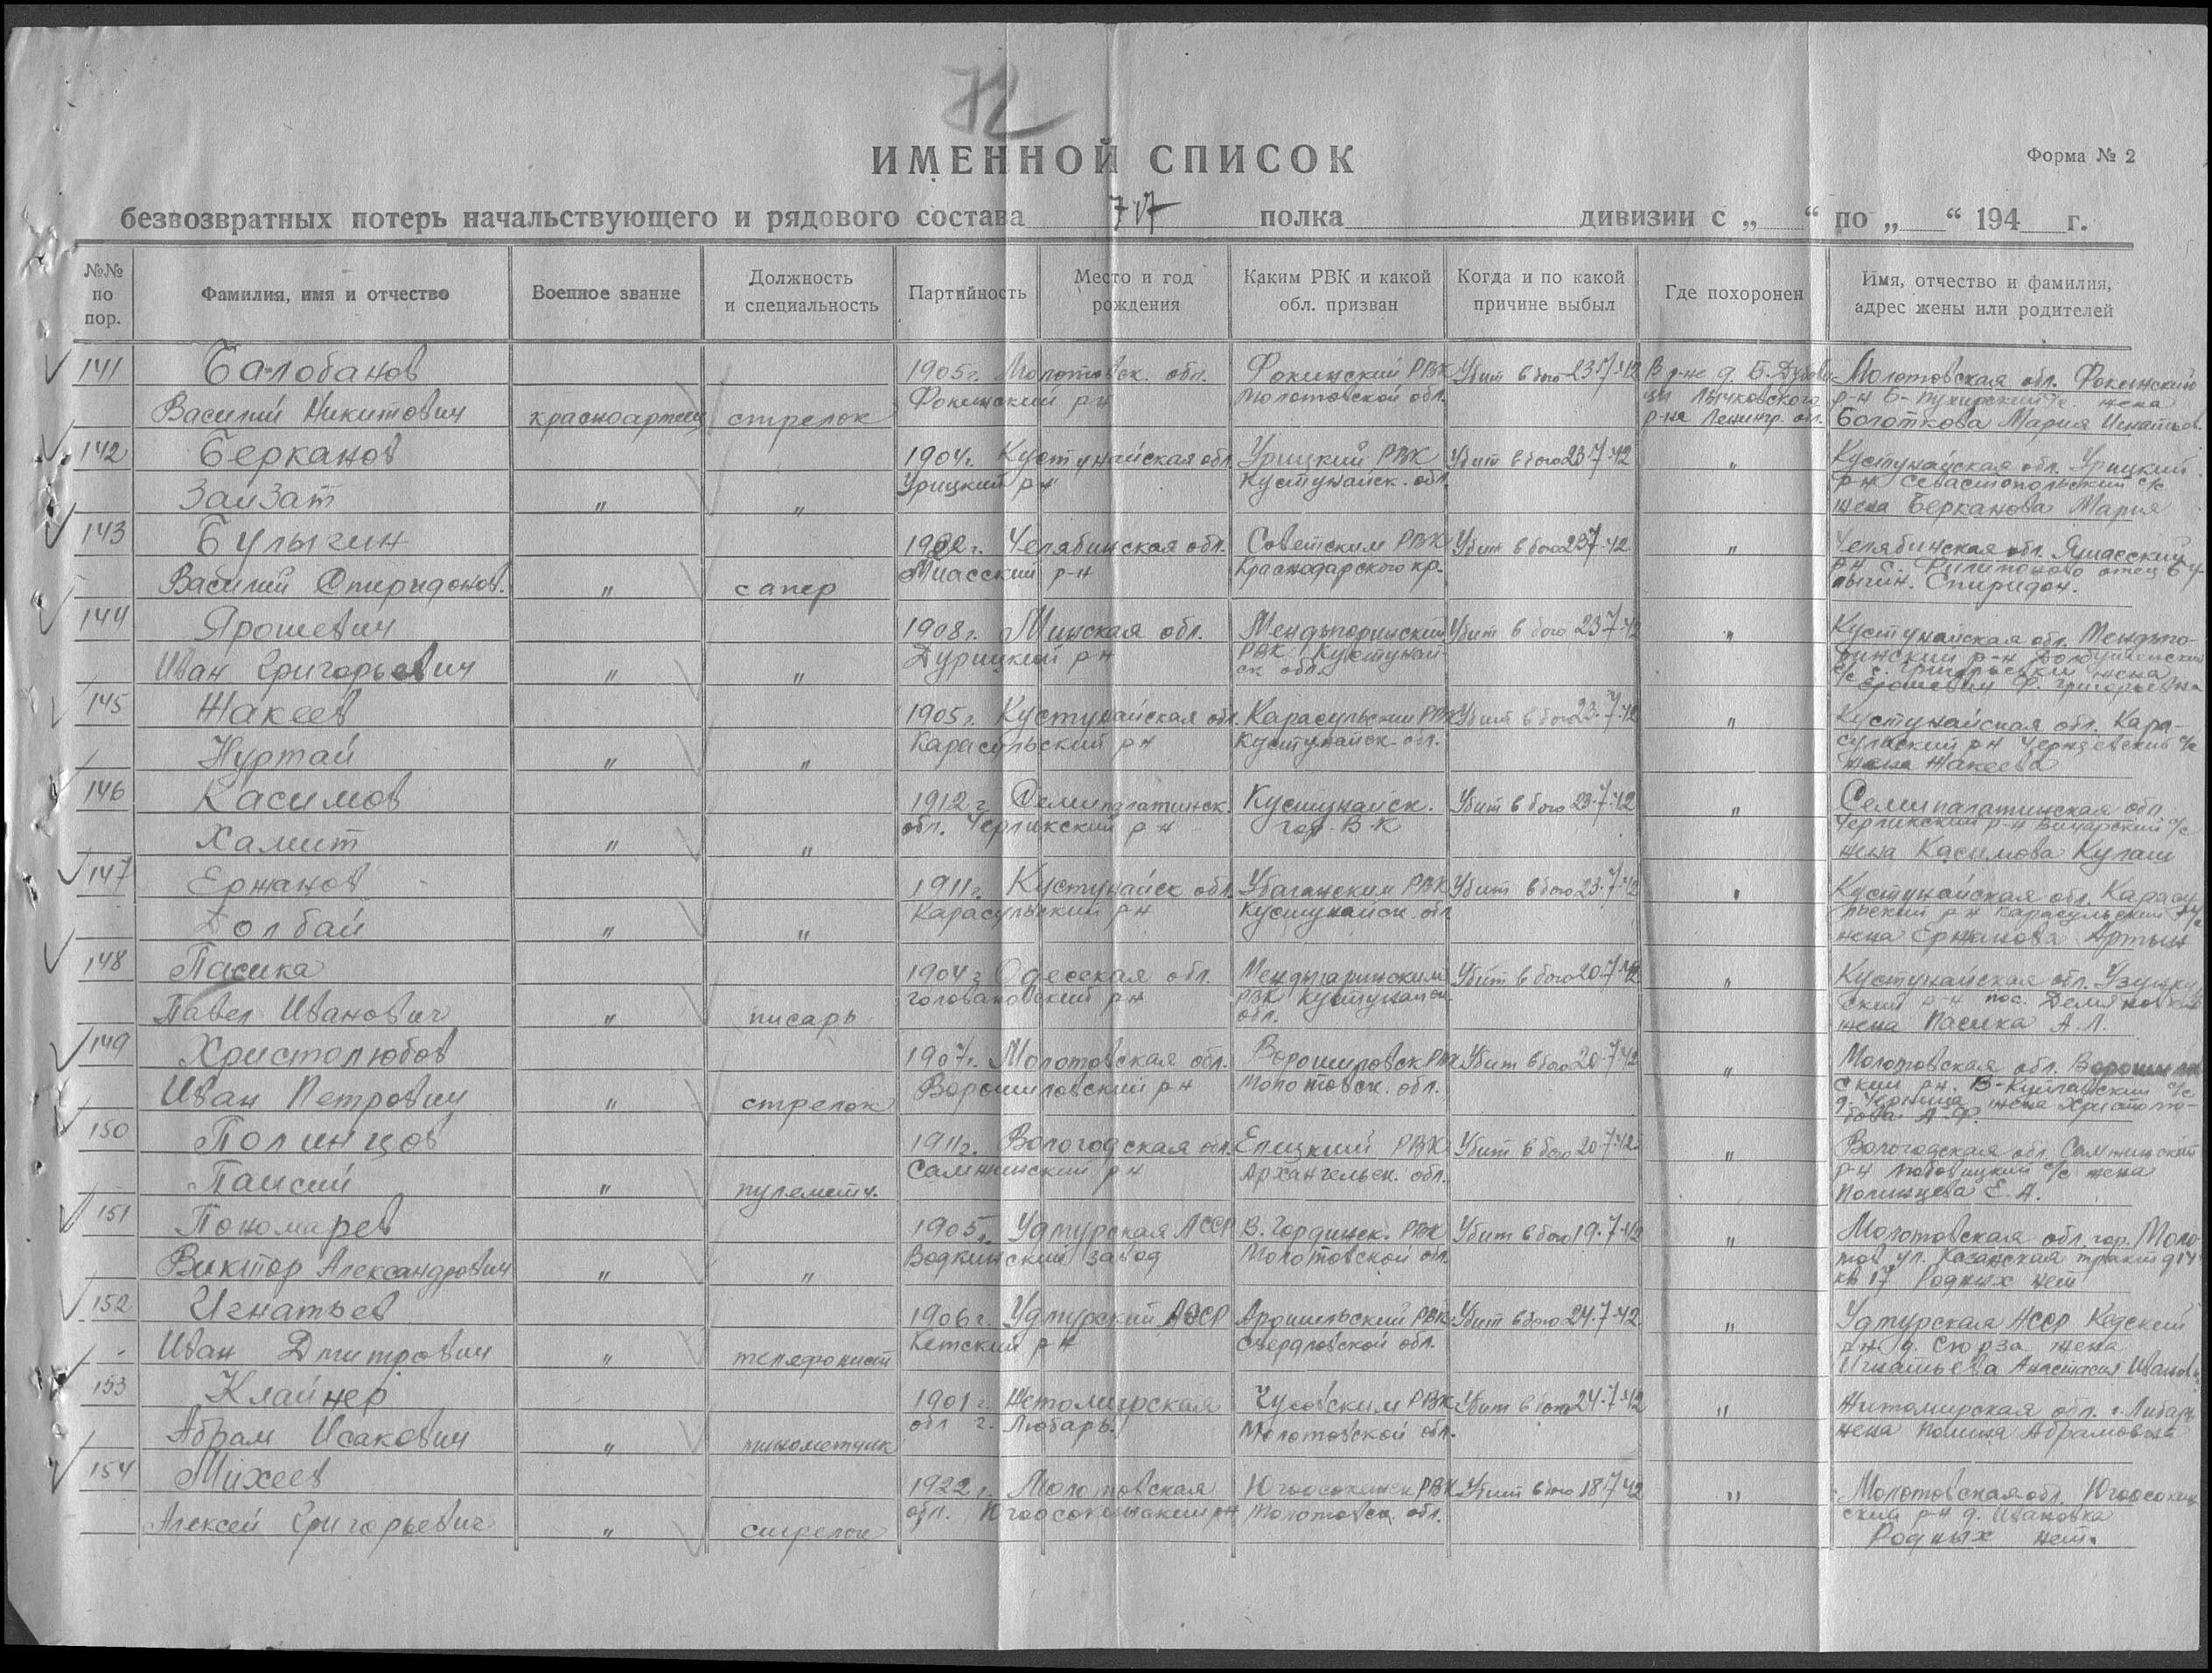 72
ИМЕННОЙ СПИСОК
Форма № 2
безвозвратных потерь начальствующего и рядового состава 717 полка дивизии с „ “ по „ “ 194 г.
№№ по пор.
Фамилия, имя и отчество
Военное звание
Должность и специальность
Партийность
Место и год рождения
Каким РВК и какой обл. призван
Когда и по какой причине выбыл
Где похоронен
Имя, отчество и фамилия, адрес жены или родителей
141 Балобанов 1905г. Молотовск. обл. Фокинский РВК Убит в бою 23.7.42 В р-не д. Молотовская обл. Фокинский
Василий Никитович красноармеец стрелок Фокинский р-н Молотовской обл. Лычковского р-н жена
р-на Ленингр. обл. Болоткова Мария
142 Берканов 1904г. Кустунайская обл. Урицкий РВК Убит в бою 23.7.42 " Кустунайская обл. Урицкий
Заизат " " Урицкий р-н Кустунайск. обл. р-н Севастопольский с/с
жена Берканова Мария
143 Булыгин 1902г. Челябинская обл. Советским РВК Убит в бою 23.7.42 " Челябинская обл.
Василий Спиридонов. " сапер Миасский р-н Краснодарского кр. р-н с. отец Бу-
лыгин. Спиридон.
144 Ярошевич 1908г. Минская обл. Мендыгоринский Убит в бою 23.7.42 " Кустунайская обл. Мендыго-
Иван Григорьевич " " р-н РВК Кустунай- ринский р-н
ск обл. жена
Ярошевич Ф. Григорьевна
145 Жакеев 1905г. Кустунайская обл. Карасульский РВК Убит в бою 23.7.42 " Кустунайская обл. Кара-
Нуртай " " Карасульский р-н Кустунайск. обл. сульский р-н с/с
жена Жакеева
146 Касимов 1912г. Семипалатинск. Кустунайск. Убит в бою 23.7.42 " Семипалатинская обл.
Хамит " " обл. Черликский р-н гор. В.К Черликский р-н с/с
жена Касимова Кулаш
147 Ержанов 1911г. Кустунайск обл. Убаганским РВК Убит в бою 23.7.42 " Кустунайская обл. Карасу
Долбай " " Карасульский р-н Кустунайск обл. льский р-н Карасульский с/с
жена Ержанова Артын
148 Пасика 1904г. Одесская обл. Мендыгаринским Убит в бою 20.7.42 " Кустунайская обл.
Павел Иванович " писарь Головановский р-н РВК Кустунайск ский р-н пос.
обл. жена Пасика А.Л.
149 Христолюбов 1907г. Молотовская обл. Ворошиловск РВК Убит в бою 20.7.42 " Молотовская обл. Ворошилов
Иван Петрович " стрелок Ворошиловский р-н Молотовск. обл. ский р-н. с/с
жена Христолю-
бова А.Ф.
150 Полинцов 1911г. Вологодская обл. Елицкий РВК Убит в бою 20.7.42 " Вологодская обл. Самжинский
Паисий " пулеметч. Самжинский р-н Архангельск. обл. р-н с/с жена
Полинцева Е.А.
151 Пономарев 1905г. Удмурская АССР В. Гординск. РВК Убит в бою 19.7.42 " Молотовская обл. гор. Моло
Виктор Александрович " " Водкинский завод Молотовской обл. тов ул. Казанская тракт д 14
кв 17 Родных нет
152 Игнатьев 1906г. Удмурский АССР РВК Убит в бою 24.7.42 " Удмурская АССР Кедский
Иван Дмитрович " телефонист Кетский р-н Свердловской обл. р-н д. Сюрза жена
Игнатьева Анастасия Иванов
153 Клайнер 1901г. Жетомирская Чусовским РВК Убит в бою 24.7.42 " Житомирская обл. г. Любарь
Абрам Исакович " минометчик обл г. Любарь. Молотовской обл. жена Полина Абрамовна
154 Михеев 1922г. Молотовская Югоосокинск РВК Убит в бою 18.7.42 " Молотовская обл. Югоосокин
Алексей Григорьевич " стрелок обл. Югоосокинский р-н Молотовск. обл. ский р-н д. Ивановка
Родных нет.